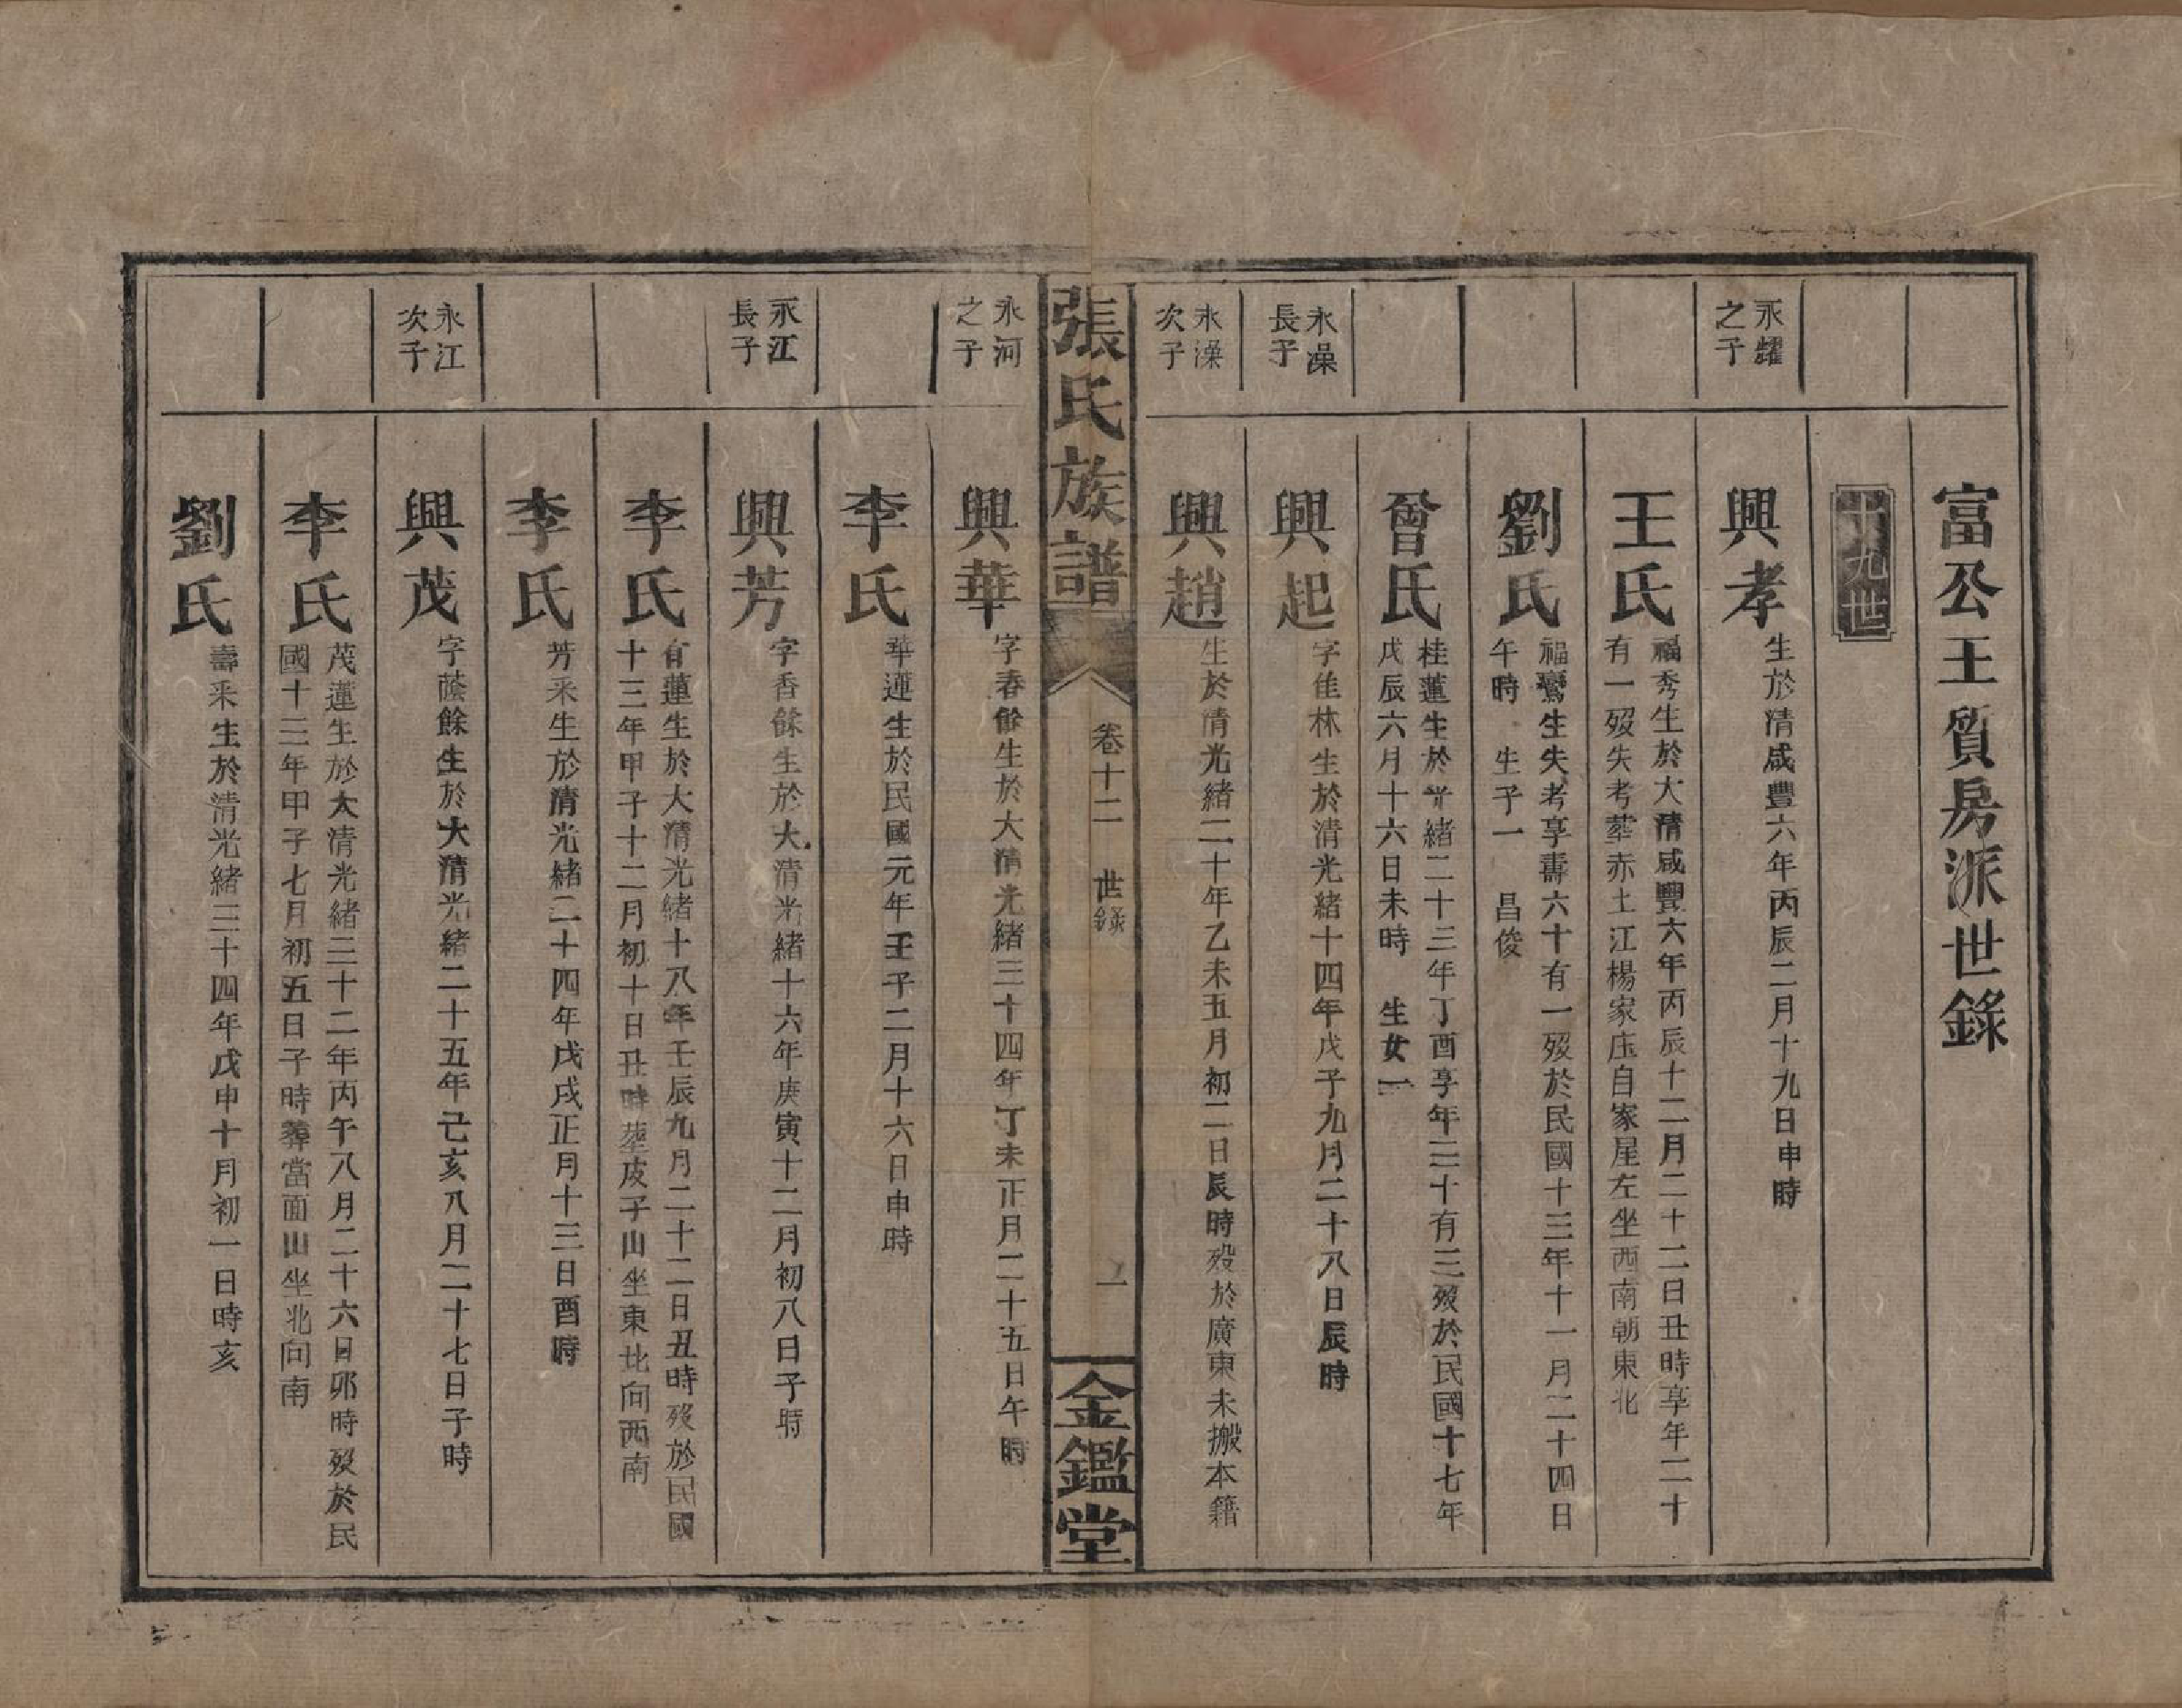 富公王質房派世錄
十九世
永耀
之子
興孝
生於清咸豐六年丙辰二月十九日申時
王氏
福秀生於大清咸豐六年丙辰十二月二十二日丑時享年二十
有一歿失考塟赤土江楊家庄自家屋左坐西南朝東北
劉氏
福鸞生失考享壽六十有一歿於民國十三年十一月二十四日
午時 生子一 昌俊
曾氏
桂蓮生於光緒二十三年丁酉享年三十有三歿於民國十七年
戊辰六月十六日未時 生女一
永澡
長子
興起
字佳林生於清光緒十四年戊子九月二十八日辰時
永澡
次子
興趙
生於清光緒二十年乙未五月初二日辰時歿於廣東未搬本籍
張氏族譜
卷十二 世錄
一
金鑑堂
永河
之子
興華
字春餘生於大清光緒三十四年丁未正月二十五日午時
李氏
華連生於民國元年壬子二月十六日申時
永江
長子
興芳
字香餘生於大清光緒十六年庚寅十二月初八日子時
李氏
有蓮生於大清光緒十八年壬辰九月二十二日丑時歿於民國
十三年甲子十二月初十日丑時塟皮子山坐東北向西南
李氏
芳釆生於清光緒二十四年戊戌正月十三日酉時
永江
次子
興茂
字蔭餘生於大清光緒二十五年己亥八月二十七日子時
李氏
茂蓮生於大清光緒三十二年丙午八月二十六日卯時歿於民
國十三年甲子七月初五日子時葬當面山坐北向南
劉氏
壽釆生於清光緒三十四年戊申十月初一日時亥